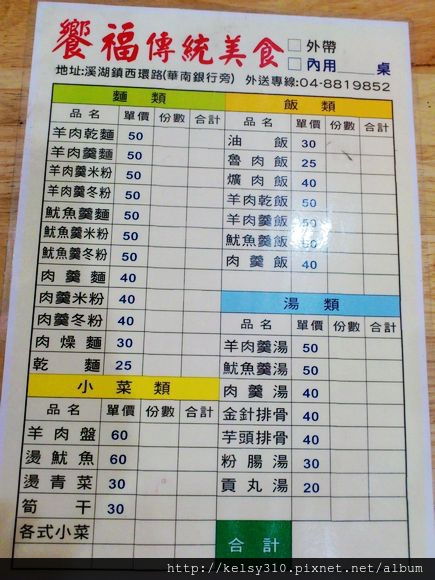 饗福傳統美食 □外帶
□內用 桌
地址:溪湖鎮西環路(華南銀行旁) 外送專線:04-8819852
麵類
品名 單價 份數 合計
羊肉乾麵 50
羊肉羹麵 50
羊肉羹米粉 50
羊肉羹冬粉 50
魷魚羹麵 50
魷魚羹米粉 50
魷魚羹冬粉 50
肉羹麵 40
肉羹米粉 40
肉羹冬粉 40
肉燥麵 30
乾麵 25
小菜類
品名 單價 份數 合計
羊肉盤 60
燙魷魚 60
燙青菜 30
筍干 30
各式小菜
飯類
品名 單價 份數 合計
油飯 30
魯肉飯 25
爌肉飯 40
羊肉乾飯 50
羊肉羹飯 50
魷魚羹飯 50
肉羹飯 40
湯類
品名 單價 份數 合計
羊肉羹湯 50
魷魚羹湯 50
肉羹湯 40
金針排骨 40
芋頭排骨 40
粉腸湯 30
貢丸湯 20
合計
http://kelsy310.pixnet.net/album